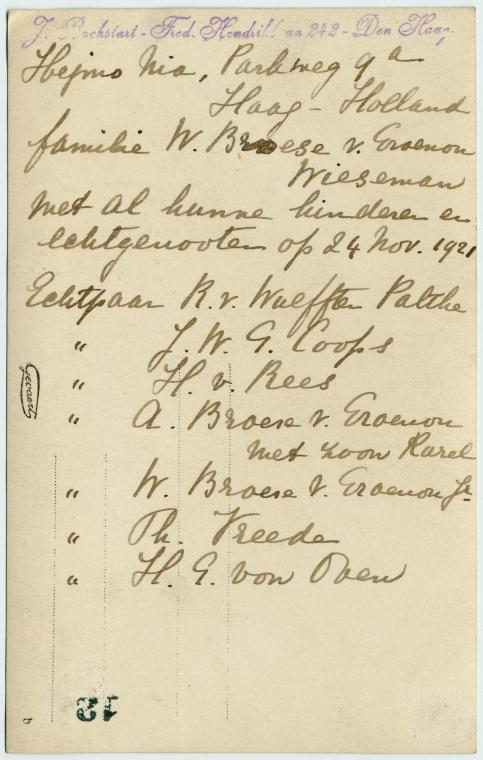 J. Bechstart - Fred. Hendrikl an 242 - Den Haag.
Nia, Parkweg 9a
Haag - Holland
familie W. Broese v. Groenou
Wieseman
met al hunne kinderen en
echtgenooten op 24 Nov. 1921
Echtpaar R. v. Wulfften Palthe
" J. W. G. Coops
" H. v. Rees
" A. Broese v. Groenou
met zoon Karel
" W. Broese v. Groenou Jr
" Th. Vreede
" H. G. von Oven
Gevaert
13
b